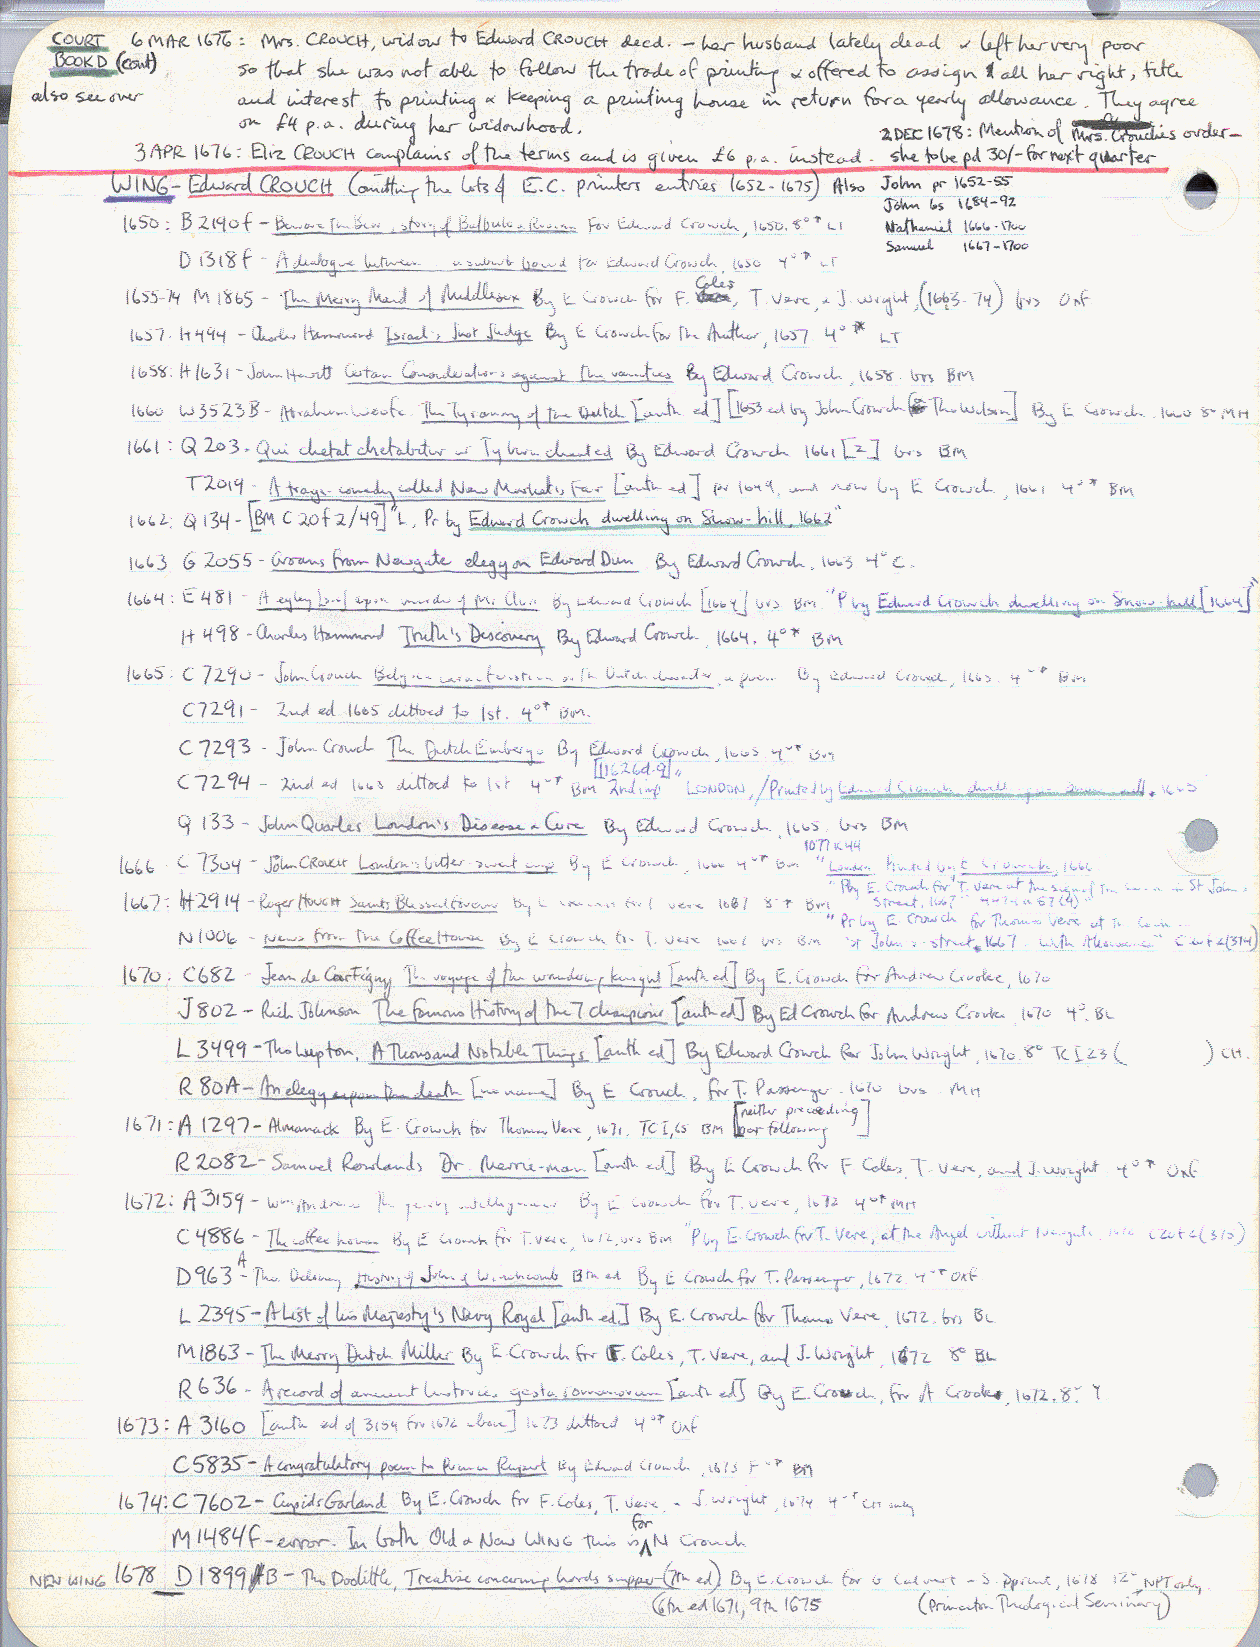 COURT BOOK D (cont) 6 MAR 1676: Mrs. CROUCH, widow to Edward CROUCH decd. - her husband lately dead & left her very poor
so that she was not able to follow the trade of printing & offered to assign all her right, title
also see over and interest to printing & keeping a printing house in return for a yearly allowance. They agree
on £4 p.a. during her widowhood.
2 DEC 1678: Mention of Mrs. Crouch's order -
3 APR 1676: Eliz CROUCH complains of the terms and is given £6 p.a. instead. she to be pd 30/- for next quarter
WING - Edward CROUCH (omitting the lots of E.C. printers entries 1652-1675) Also John pr 1652-55
John bs 1684-92
Nathaniel 1666-1700
Samuel 1667-1700
1650: B2190f - Beware the Bear, story of Balbulo & Rosina For Edward Crouch, 1650. 8°* LT
D1318f - A dialogue between a suburb bawd for Edward Crouch, 1650 4°* LT
1655-74 M1865 - The Merry Maid of Middlesex By E Crouch for F. Coles, T. Vere, & J. Wright, (1663-74) brs OXF
1657: H494 - Charles Hammond Israel's Just Judge By E Crouch for the Author, 1657 4°* LT
1658: H1631 - John Hewitt Certain Considerations against the vanities By Edward Crouch, 1658. brs BM
1660 W3523B - Abraham Woofe. The Tyranny of the Dutch [anth ed] [1653 ed by John Crouch & Tho Wilson] By E Crouch. 1660 8° MH
1661: Q203 - Qui chetat chetabitur or Tyburn cheated By Edward Crouch 1661 [2] brs BM
T2019 - A tragi-comedy called New Market's Fair [anth ed] pr 1649, and now by E Crouch, 1661 4°* BM
1662: Q134 - [BM C20f2/49] "L, Pr by Edward Crouch dwelling on Snow-hill, 1662"
1663 G2055 - Groans from Newgate elegy on Edward Dun By Edward Crouch, 1663 4° C.
1664: E481 - A egley [sic] upon murder of Mr Clun By Edward Crouch [1664] brs BM "P by Edward Crouch dwelling on Snow-hill [1664]"
H498 - Charles Hammond Truth's Discovery By Edward Crouch, 1664. 4°* BM
1665: C7290 - John Crouch Belgica caracteristica or the Dutch character, a poem By Edward Crouch, 1665. 4°* BM
C7291 - 2nd ed 1665 dittoed to 1st. 4°* BM.
C7293 - John Crouch The Dutch Embargo By Edward Crouch, 1665 4°* BM
C7294 - 2nd ed 1665 dittoed to 1st 4°* BM 2nd imp [11626d.9] "LONDON, / Printed by Edward Crouch, dwelling upon Snow-hill. 1665
Q133 - John Quarles London's Disease & Cure By Edward Crouch, 1665. brs BM
1666 C7304 - John CROUCH London's bitter-sweet cup By E Crouch, 1666 4°* BM 1077 k 44 "London Printed by E Crouch, 1666
1667: H2914 - Roger HOUGH Saints Blessed Forever By E Crouch for T Vere 1667 8°* BM "P by E. Crouch for T. Vere at the sign of the in St John's Street, 1667"
N1006 - News from the Coffee House By E Crouch for T. Vere 1667 brs BM "Pr by E Crouch for Thomas Vere at the St John's-street, 1667 with Allowance" C20f2(314)
1670: C682 - Jean de Cartigny, The voyage of the wandering knight [anth ed] By E. Crouch for Andrew Crooke, 1670
J802 - Rich Johnson The famous History of the 7 champions [anth ed] By Ed Crouch for Andrew Crooke 1670 4°. BL
L3499 - Tho Lupton, A Thousand Notable Things [anth ed] By Edward Crouch for John Wright, 1670. 8° TC I 23 ( ) CH.
R80A - An elegy upon the death [no name] By E Crouch, for T. Passenger. 1670 brs MH
1671: A1297 - Almanack By E. Crouch for Thomas Vere, 1671. TC I, 65 BM [neither preceeding nor following]
R2082 - Samuel Rowlands Dr. Merrie-man [anth ed] By E Crouch for F Coles, T. Vere, and J. Wright 4°* OXF
1672: A3159 - Wm Andrews The yearly intelligencer By E Crouch for T. Vere, 1672 4°* MH
C4886 - The coffee house By E Crouch for T. Vere, 1672, brs BM "P by E. Crouch for T. Vere, at the Angel without Newgate, 1672 C20f2(375)
D963A - Tho. Deloney, History of John of Winchcomb BM ed By E Crouch for T. Passenger, 1672. 4°* OXF
L2395 - A List of his Majesty's Navy Royal [anth ed.] By E. Crouch for Thomas Vere, 1672. brs BL
M1863 - The Merry Dutch Miller By E. Crouch for F. Coles, T. Vere, and J. Wright, 1672 8° BL
R636 - A record of ancient histories, gesta romanorum [anth ed] By E. Crouch, for A Crooke, 1672. 8°. Y
1673: A3160 [anth ed of 3159 for 1672 above] 1673 dittoed 4°* OXF
C5835 - A congratulatory poem to Prince Rupert By Edward Crouch, 1673 F°* BM
1674: C7602 - Cupids Garland By E. Crouch for F. Coles, T. Vere, & J. Wright, 1674 4°*
M1484f - error. In both Old & New WING this is for N Crouch
NEW WING 1678 D1899AB - Tho Doolittle, Treatise concerning Lords supper (7th ed) By E. Crouch for G Calvert & S. Sprint, 1678 12°, NPT only.
(6th ed 1671, 9th 1675 (Princeton Theological Seminary)